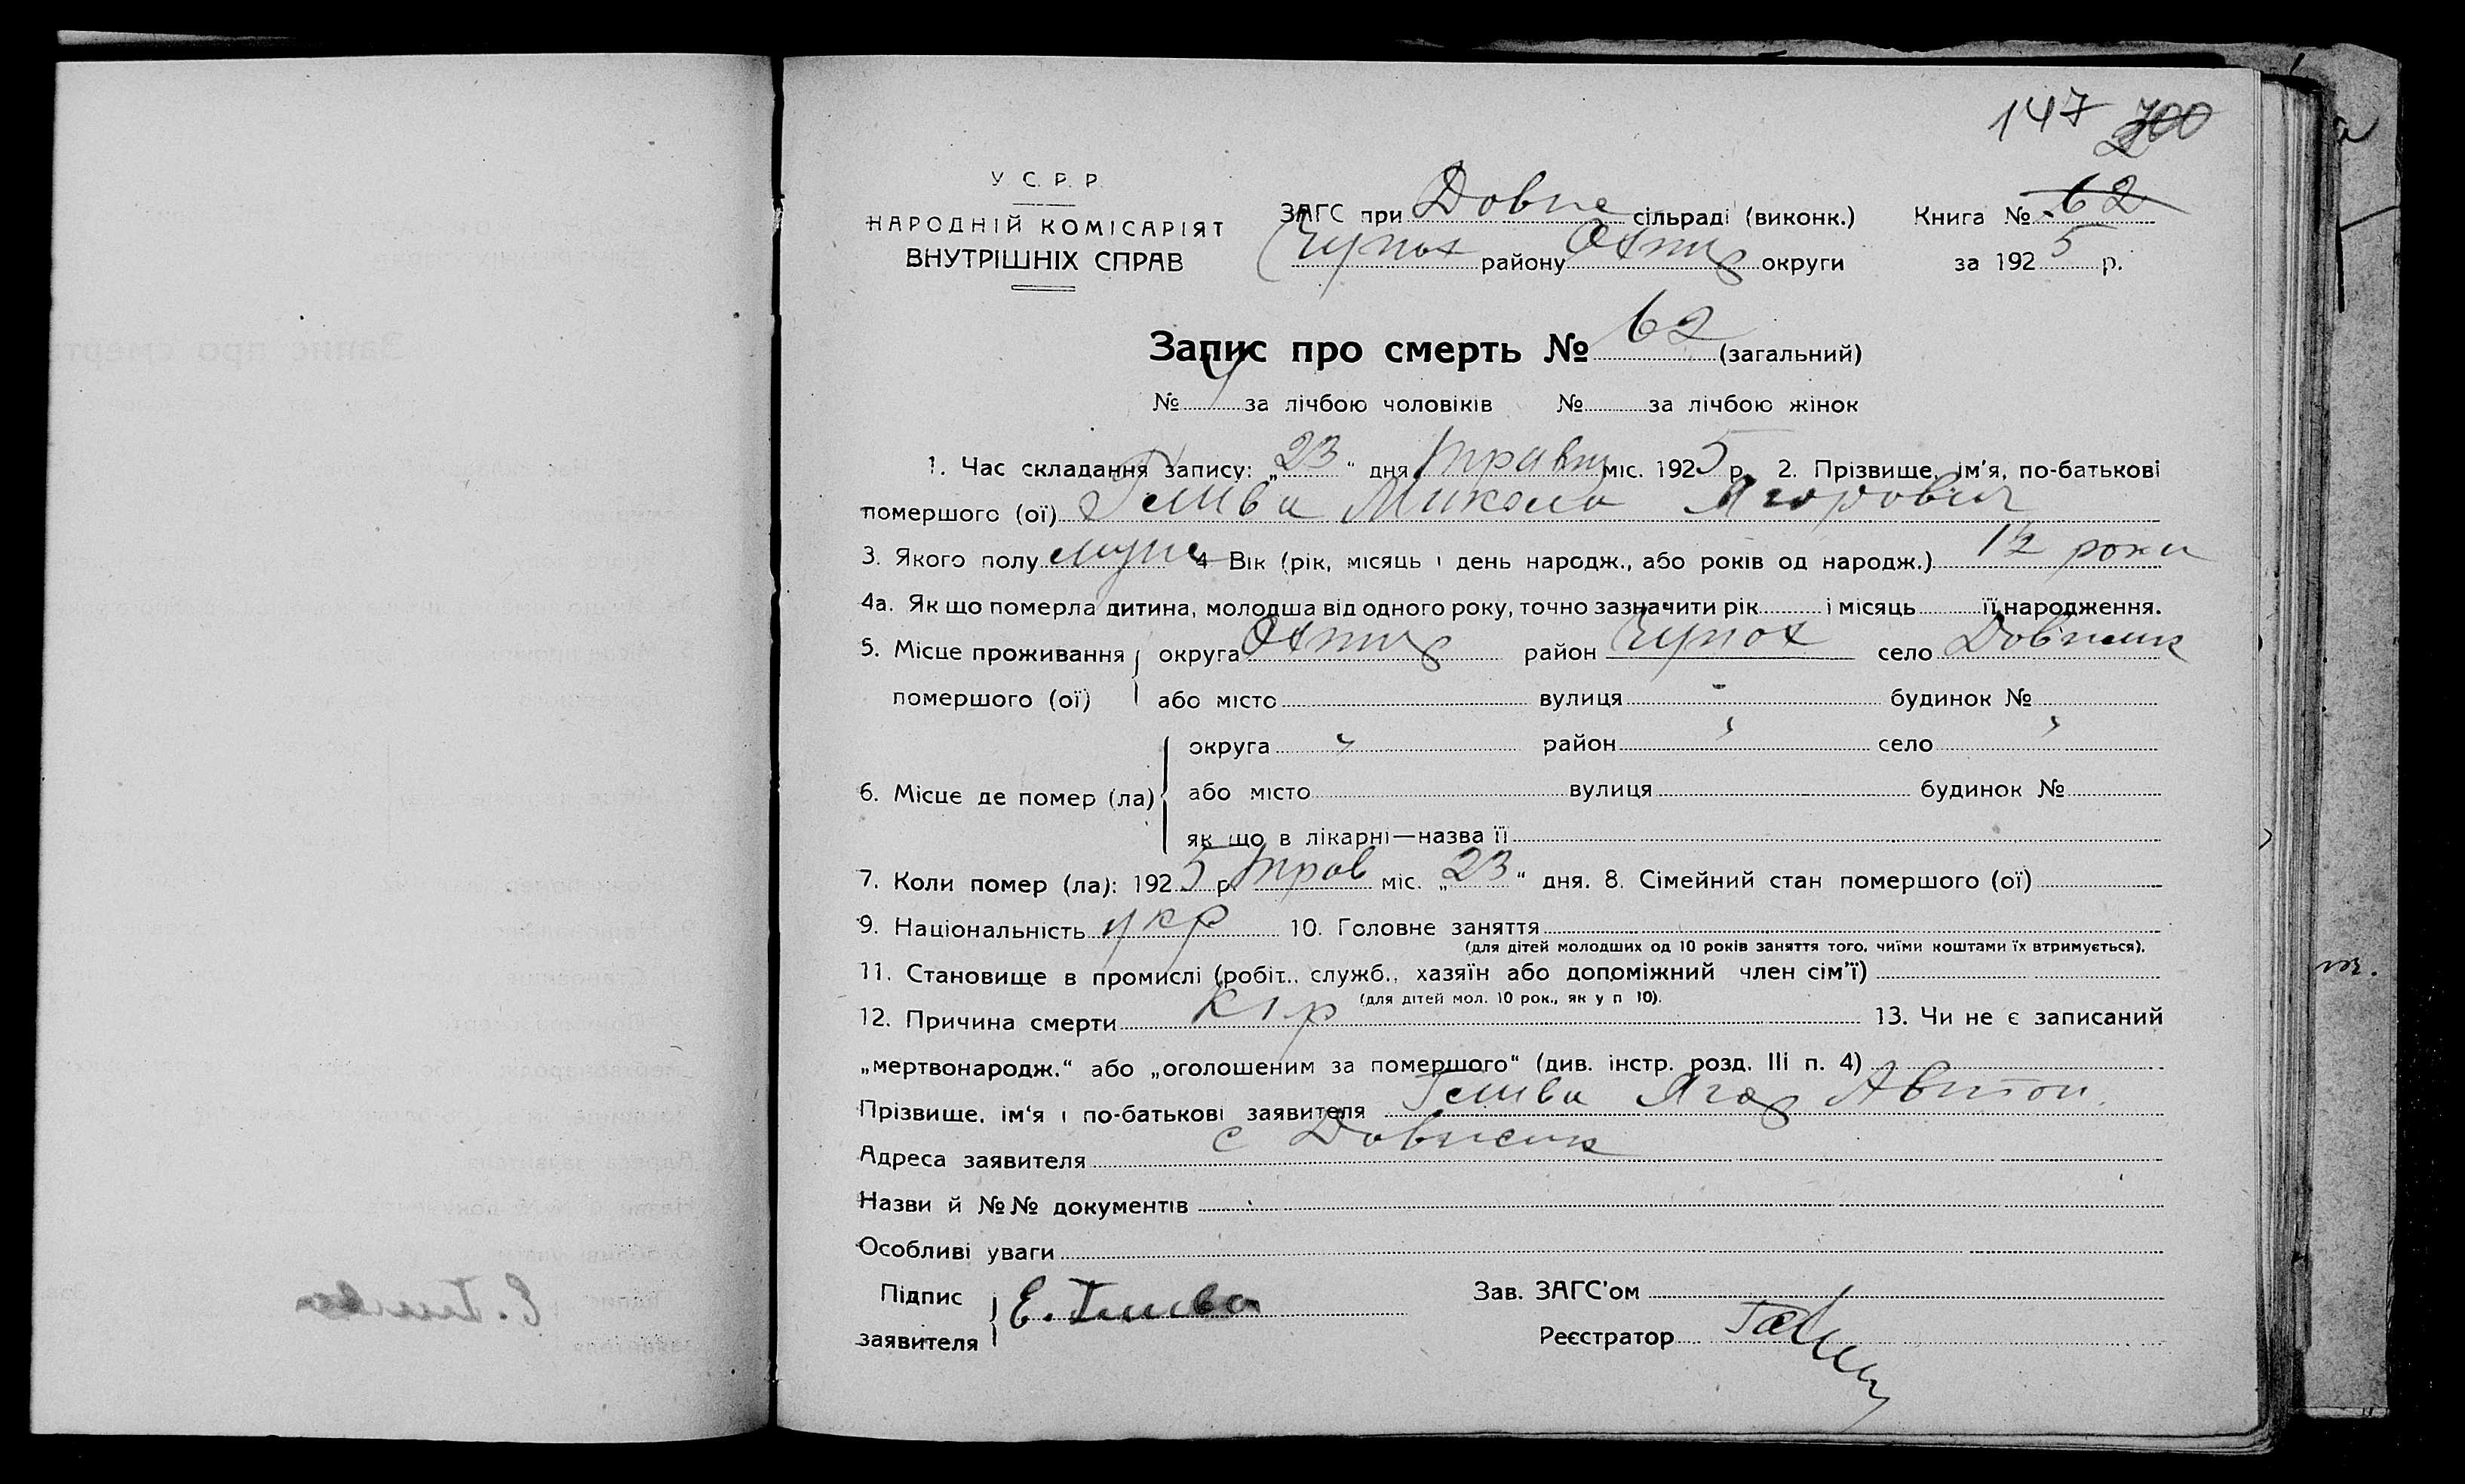 147 200
У. С. Р. Р.
НАРОДНІЙ КОМІСАРІЯТ
ВНУТРІШНІХ СПРАВ
ЗАГС при Довже сільраді (виконк.) Книга № 62
Чупах району Охтир округи за 1925 р.
Запис про смерть № 62 (загальний)
№ за лічбою чоловіків № за лічбою жінок
1. Час складання запису: „23“ дня Травня міс. 1925 р. 2. Прізвище, ім'я, по-батькові
помершого (ої) Микола Ягорович
3. Якого полу муж 4 Вік (рік, місяць і день народж., або років од народж.) 1½ роки
4а. Як що померла дитина, молодша від одного року, точно зазначити рік і місяць її народження.
5. Місце проживання округа Охтир район Чупах село Довжик
помершого (ої) або місто вулиця будинок №
округа " район " село "
6. Місце де помер (ла) або місто вулиця будинок №
як що в лікарні—назва її
7. Коли помер (ла): 1925 р. Трав міс. „23“ дня. 8. Сімейний стан помершого (ої)
9. Національність укр 10. Головне заняття
(для дітей молодших од 10 років заняття того, чиїми коштами їх втримується).
11. Становище в промислі (робіт., служб., хазяїн або допоміжний член сім'ї)
(для дітей мол. 10 рок., як у п 10).
12. Причина смерти кір 13. Чи не є записаний
„мертвонародж.“ або „оголошеним за помершого“ (див. інстр. розд. III п. 4)
Прізвище, ім'я і по-батькові заявителя Ягор
Адреса заявителя с Довжик
Назви й №№ документів
Особливі уваги
Підпис Зав. ЗАГС'ом
заявителя Реєстратор